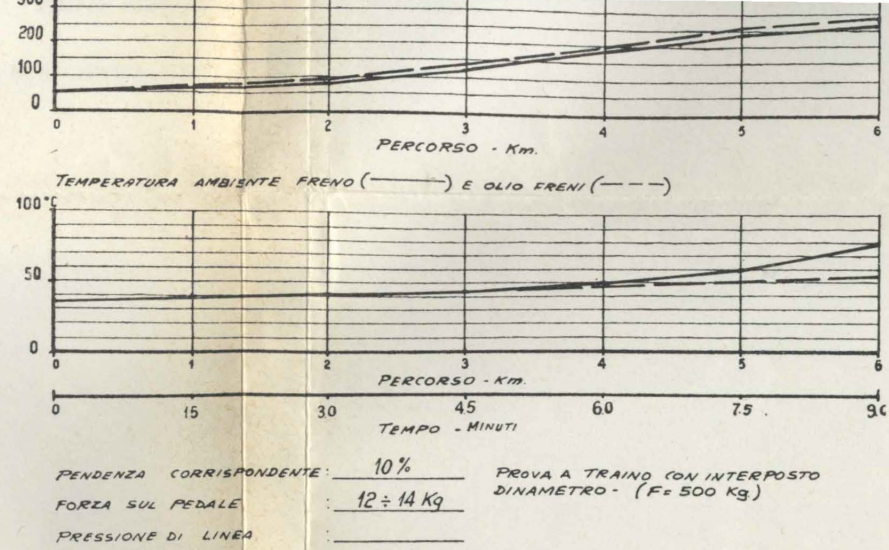 300
200
100
0
0 1 2 3 4 5 6
PERCORSO - Km.
TEMPERATURA AMBIENTE FRENO (———) E OLIO FRENI (– – –)
100 °C
50
0
0 1 2 3 4 5 6
PERCORSO - Km.
0 15 3.0 4.5 6.0 7.5 9.0
TEMPO - MINUTI
PENDENZA CORRISPONDENTE: 10%
FORZA SUL PEDALE : 12 ÷ 14 Kg
PRESSIONE DI LINEA :
PROVA A TRAINO CON INTERPOSTO
DINAMETRO - (F= 500 Kg.)